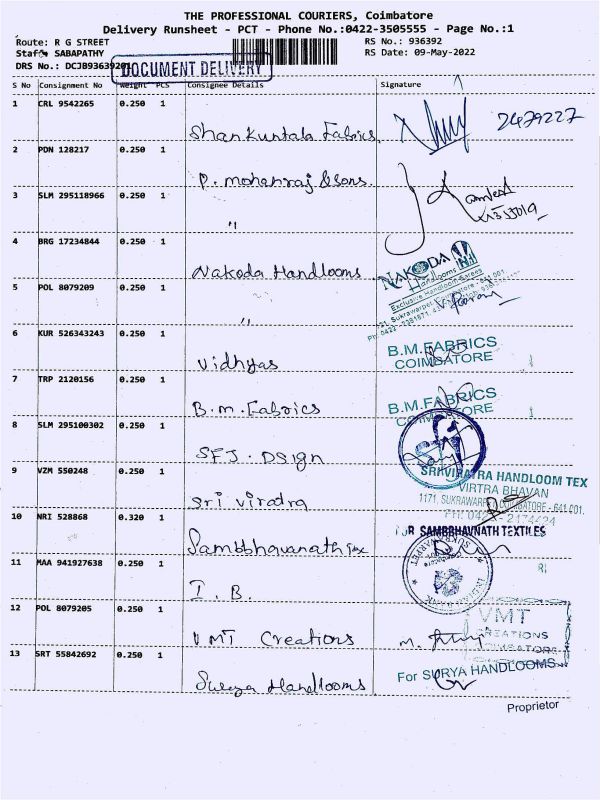 THE PROFESSIONAL COURIERS, Coimbatore
Delivery Runsheet - PCT - Phone No.:0422-3505555 - Page No.:1
Route: R G STREET RS No.: 936392
Staff: SABAPATHY RS Date: 09-May-2022
DRS No.: DCJB93639201
DOCUMENT DELIVERY
S No Consignment No Weight PCS Consignee Details Signature
1 CRL 9542265 0.250 1
Shankuntala Fabrics, 2479227
2 PDN 128217 0.250 1
P. mohanraj & sons.
3 SLM 295118966 0.250 1
"
4 BRG 17234844 0.250 1
Nakoda Handlooms
NAKODA Handlooms
Exclusive Handloom Sarees
5 POL 8079209 0.250 1
"
6 KUR 526343243 0.250 1
Vidhyas
B.M.FABRICS
COIMBATORE
7 TRP 2120156 0.250 1
B.m.Fabrics
B.M.FABRICS
COIMBATORE
8 SLM 295100302 0.250 1
SFJ. DSign
9 VZM 550248 0.250 1
Sri Viratra
SRI VIRATRA HANDLOOM TEX
VIRTRA BHAVAN
1171, SUKRAWARPET, COIMBATORE - 641 001.
PH: 0422 - 2474424
10 NRI 528868 0.320 1
Sambbhavanath Tex
FOR SAMBBHAVNATH TEXTILES
11 MAA 941927638 0.250 1
I. B.
12 POL 8079205 0.250 1
VMT Creations
VMT
CREATIONS
COIMBATORE
13 SRT 55842692 0.250 1
Surya Handlooms
For SURYA HANDLOOMS
Proprietor